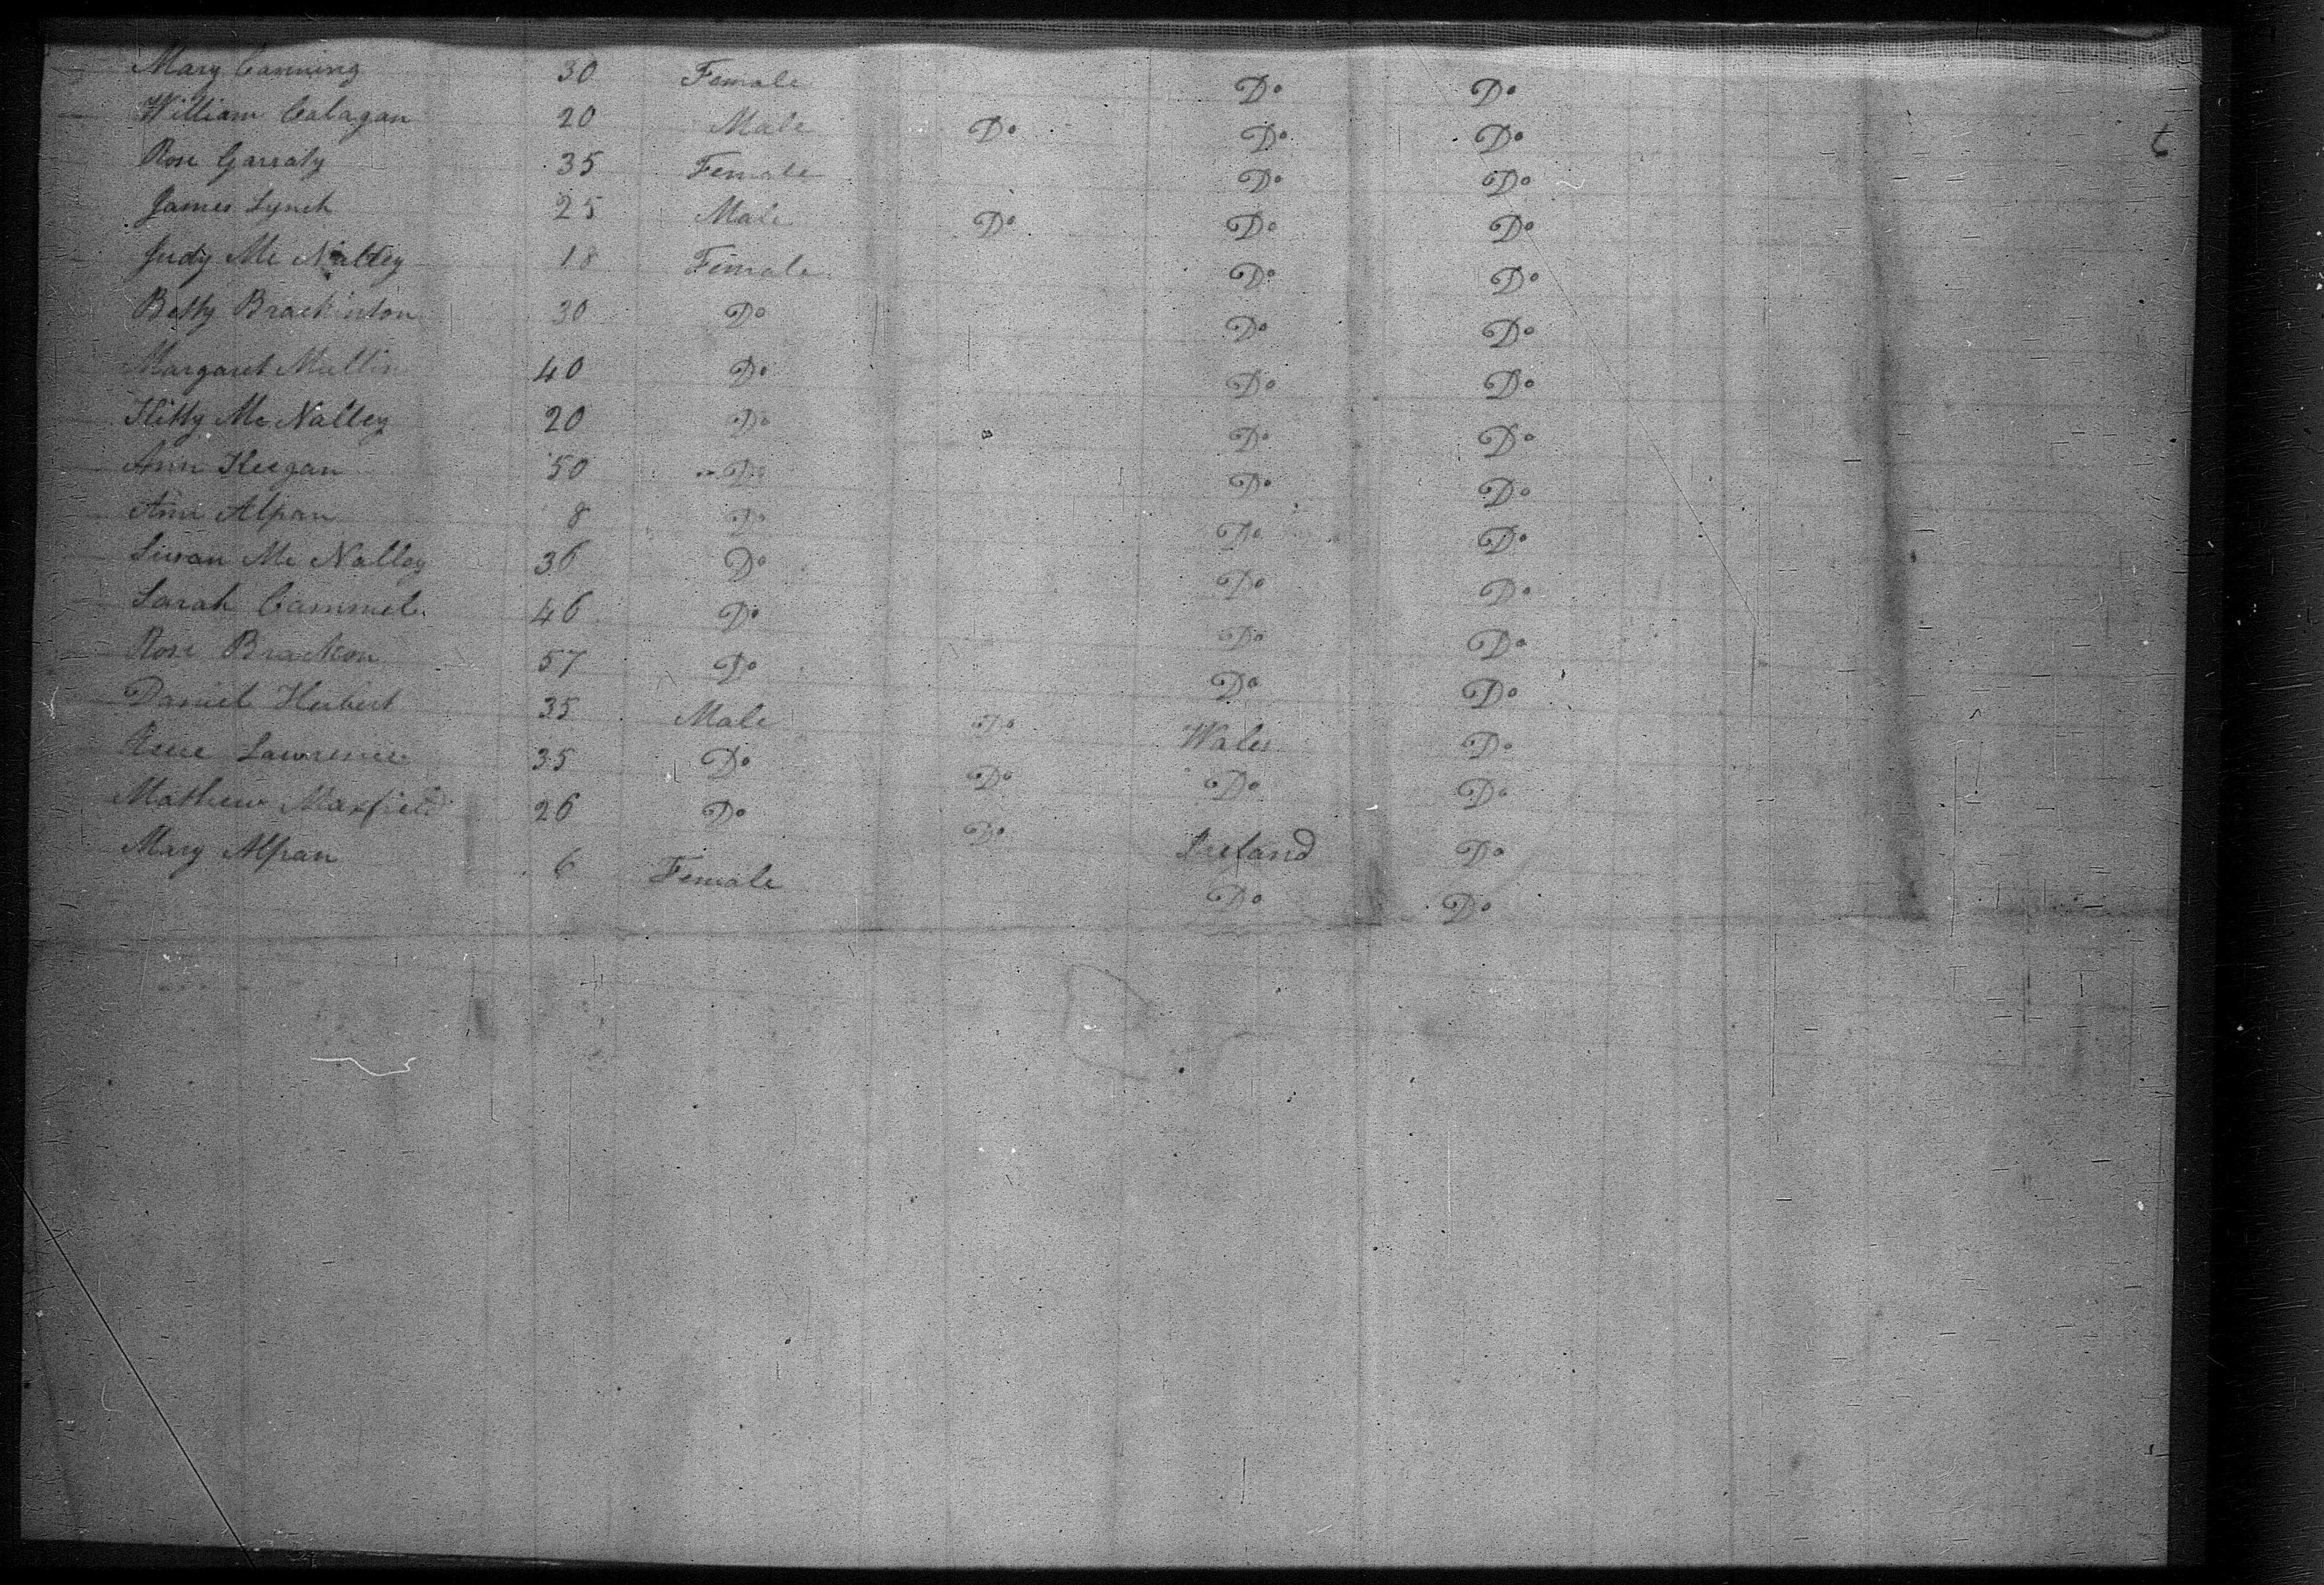 Mary Canning 30 Female Do Do
William Calagan 20 Male Do Do Do
Rose Garraty 35 Female Do Do
James Lynch 25 Male Do Do Do
Judy Mc Nalley 18 Female Do Do
Betty Brackinton 30 Do Do Do
Margaret Mullin 40 Do Do Do
Kitty Mc Nalley 20 Do Do Do
Ann Keegan 50 Do Do Do
Ann Alpan 8 Do Do Do
Susan Mc Nalley 36 Do Do Do
Sarah Cammel 46 Do Do Do
Rose Bracken 57 Do Do Do
Daniel Herbert 35 Male Do Wales Do
Lawrence 35 Do Do Do Do
Mathew Maxfield 26 Do Do Ireland Do
Mary Alpan 6 Female Do Do